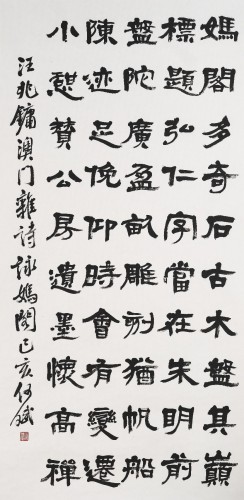 媽閣多奇石古木盤其巔
標題弘仁字當在朱明前
盤陀廣盈畝雕刻猶帆船
陳迹足俛仰時會有變遷
小憩贊公房遺墨懷高禪
汪兆鏞澳门雜詩詠媽閣己亥何斌